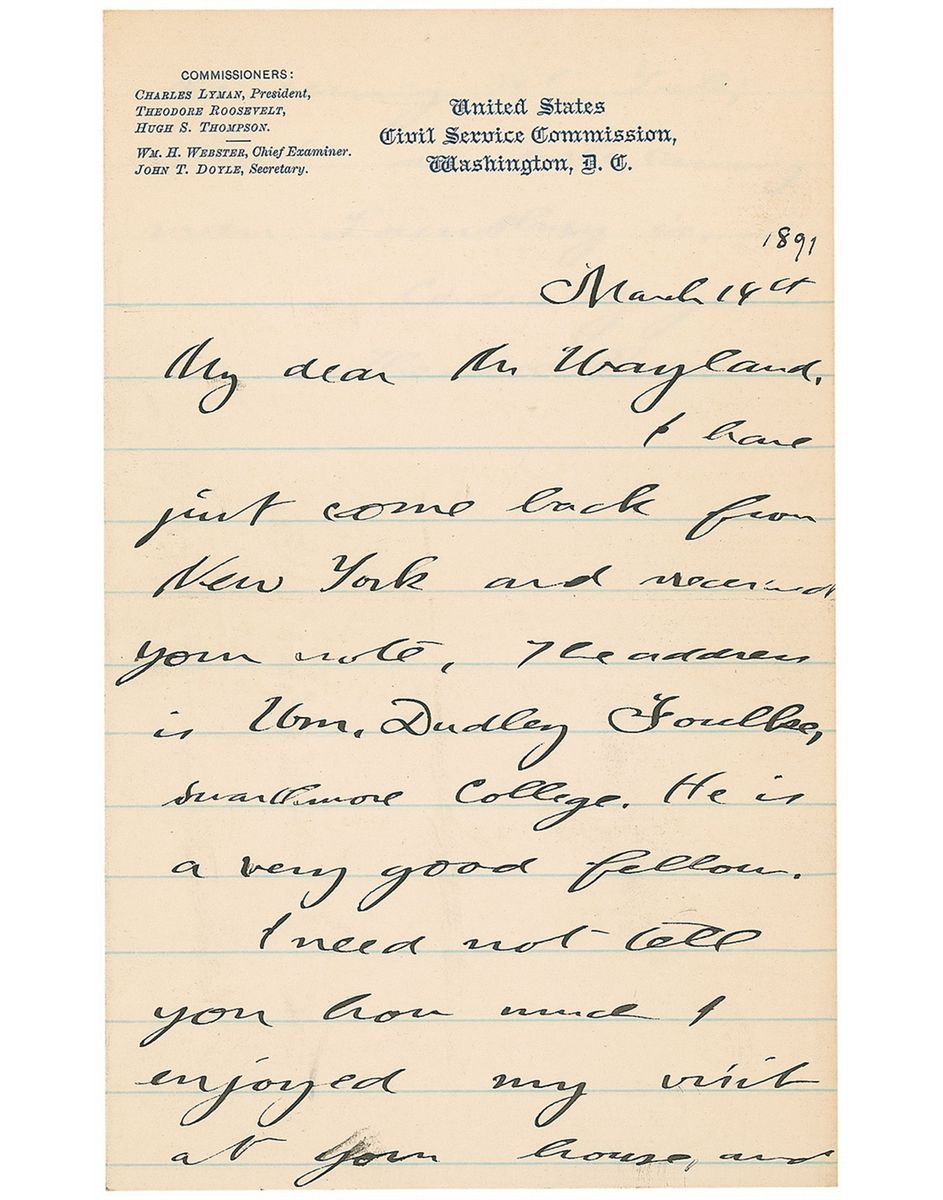 COMMISSIONERS:
CHARLES LYMAN, President,
THEODORE ROOSEVELT,
HUGH S. THOMPSON.
WM. H. WEBSTER, Chief Examiner.
JOHN T. DOYLE, Secretary.
United States
Civil Service Commission,
Washington, D. C.
1891
March 14th
My dear Mr Wayland,
I have
just come back from
New York and received
your note, The address
is Wm. Dudley Foulke,
Swarthmore College. He is
a very good fellow.
I need not tell
you how much I
enjoyed my visit
at your house, and